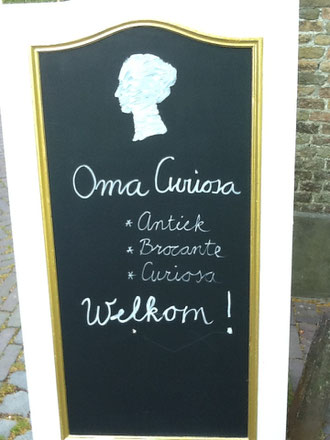 Oma Curiosa
* Antiek
* Brocante
* Curiosa
Welkom !